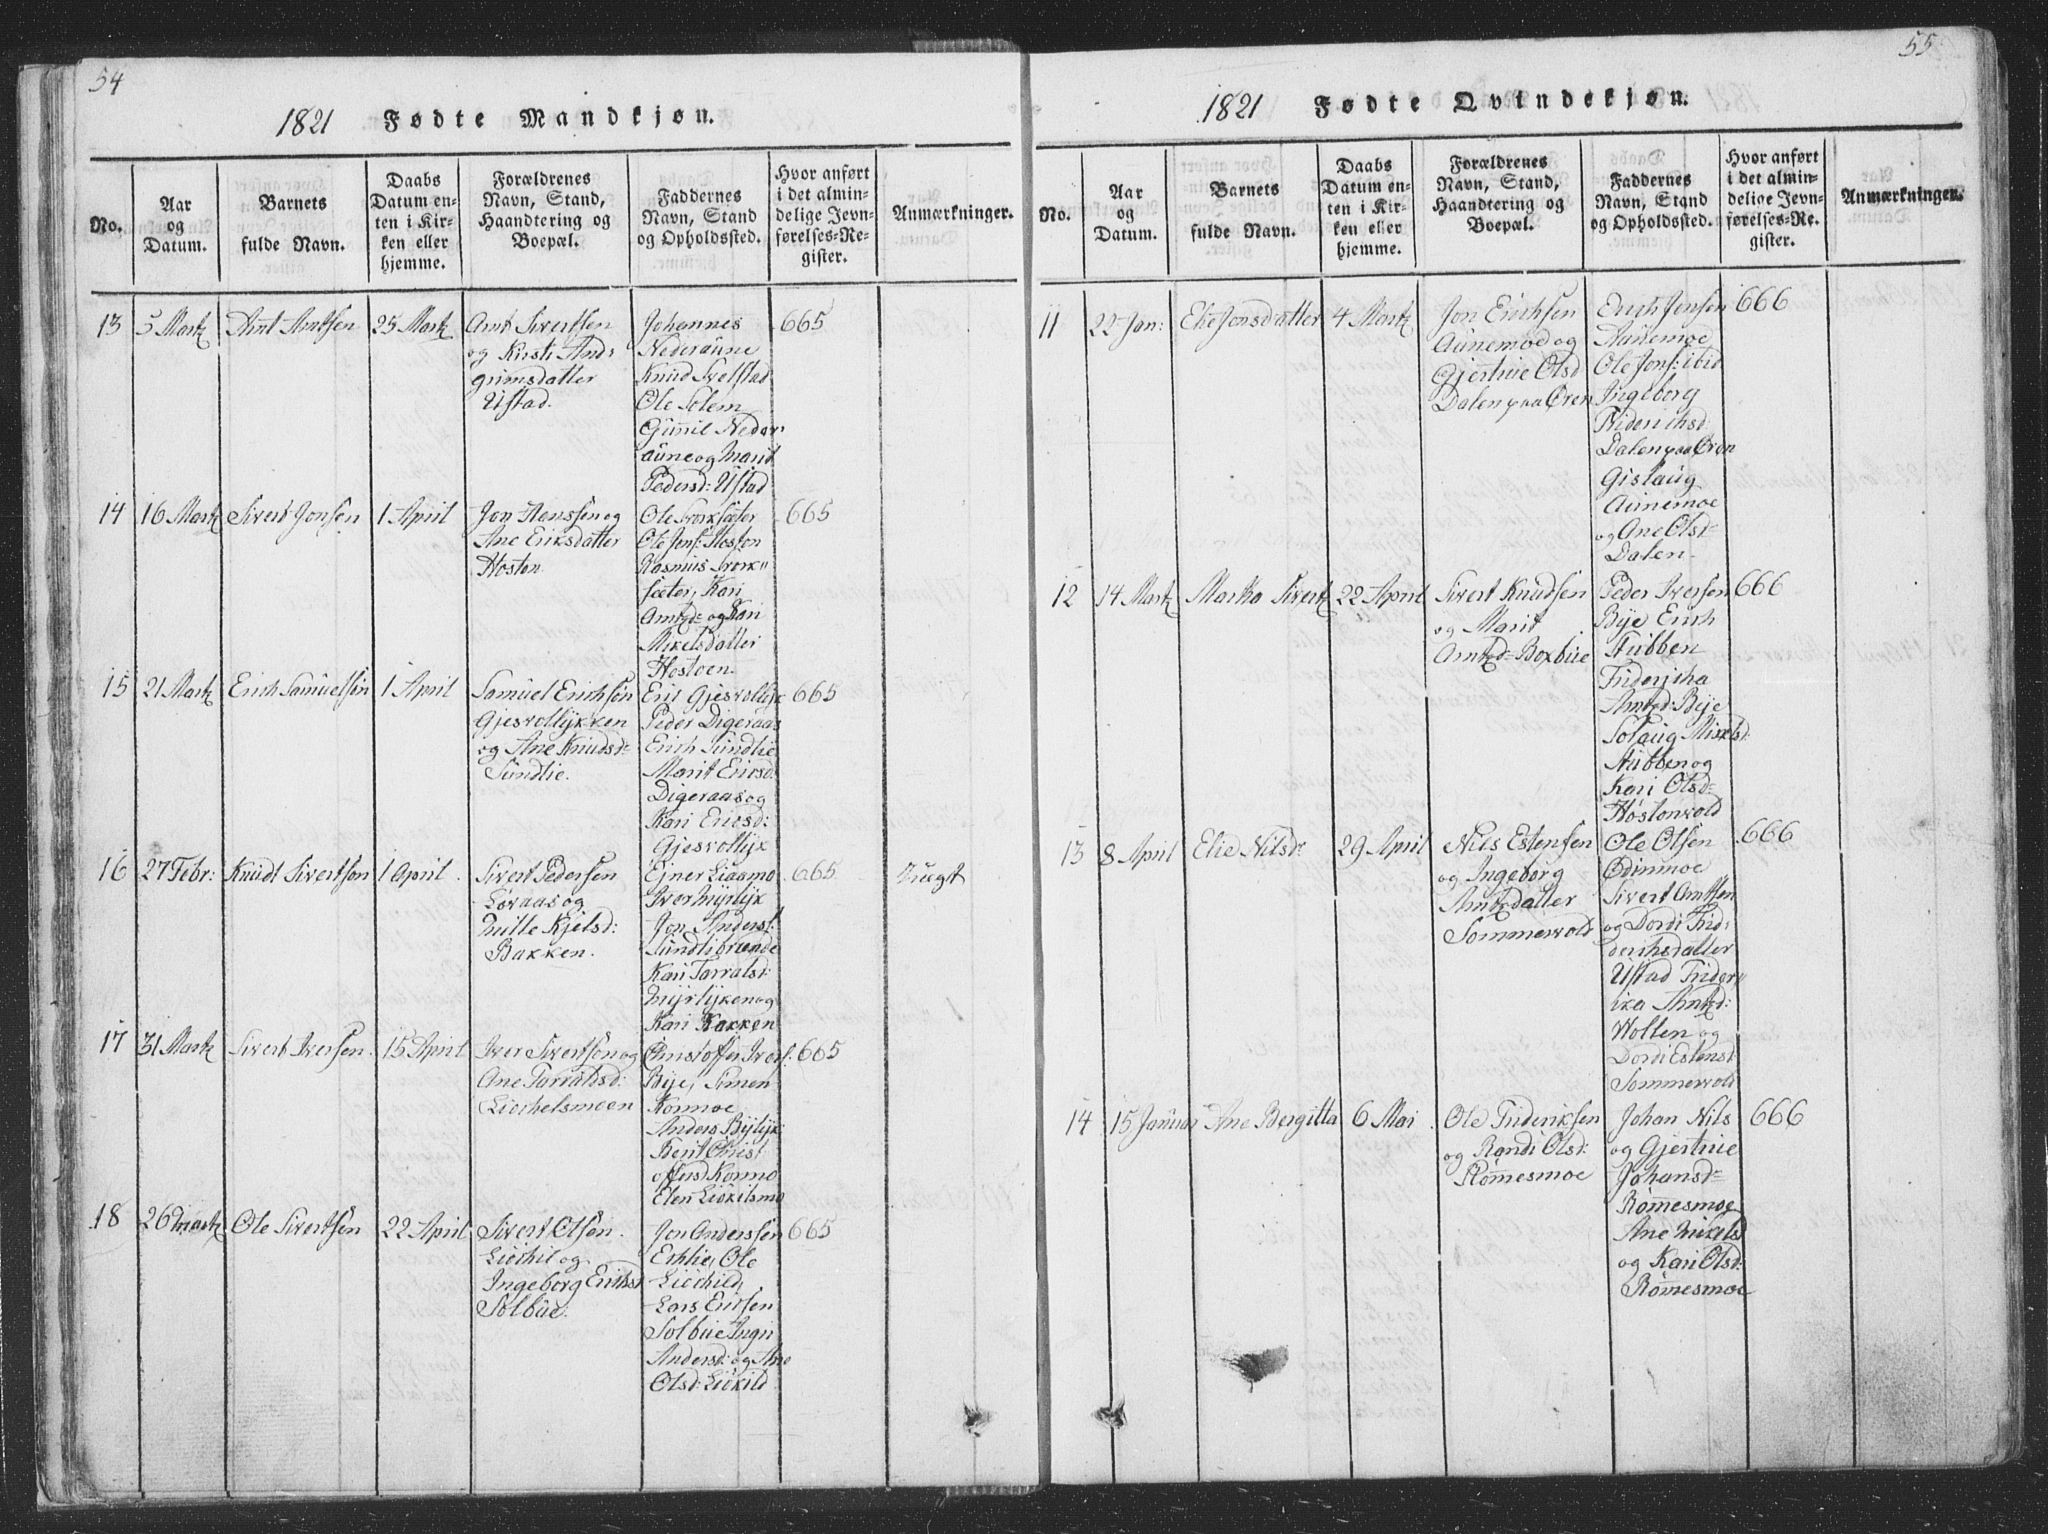 54
1821 Fødte Mandkjøn.
No.
Aar
og
Datum.
Barnets
fulde Navn.
Daabs
Datum en-
ten i Kir-
ken eller
hjemme.
Forældrenes
Navn, Stand,
Haandtering og
Boepæl.
Faddernes
Navn, Stand
og Opholdssted.
Hvor anført
i det almin-
delige Jevn-
førelses-Re-
gister.
Anmærkninger.
13
5 Martz
Arnt Arntsen
25 Martz
Arnt Sivertsen
og Kirsti And:
grimsdatter
Ustad.
Johannes
Nederaune
Knud Svelstad
Ole Solem
Gunnil Neder:
aune og Marit
Pedersd: Ustad
665
14
16 Martz
Sivert Jonsen
1 April
Jon Hanssen og
Ane Eriksdatter
Hosten
Ole Svorksæter
Ole Jons: Hosten
Rasmus Svork"
sæter, Kari
Arntzd: og Kari
Mikelsdatter
Hostoen.
665
15
21 Martz
Erich Samuelsøn
1 April
Samuel Erichsøn
Gjesvollykken
og Ane Knudsd:
Sundlie.
Eric Gjesvollyk
Peder Digeraas
Erich Sundlie
Marit Ericsd:
Digeraas og
Kari Ericsd:
Gjesvollyk
665
16
27 Febr:
Knudt Sivertsøn
1 April
Sivert Pedersen
Løraas og
Mille Kjelsd:
Bakken.
Ejner Liaamo
Iver Myrlyk
Jon Anderst:
Sundlibrænde
Kari Tarralsd:
Myrlyken og
Kari Bakken
665
17
31 Martz
Sivert Iversen.
15 April
Iver Sivertsøn og
Ane Tarralsd:
Liochelsmoen
Christoffer Ivers:
Bye, Simen
Konmoe
Anders Bylyk
Berit Christ
offersd Konmo
Elen Liøkilsmo
665
18
26 Martz
Ole Sivertsøn
22 April
Sivert Olsøn.
Liøchil og
Ingeborg Erichsd
Solbue.
Jon Anderssen
Echlie, Ole
Liochild,
Lars Ericsen
Solbue Ingri
Andersd: og Ane
Olsd: Liökild
665
55
1821 Fødte Qvindekjøn.
No.
Aar
og
Datum.
Barnets
fulde Navn.
Daabs
Datum en-
ten i Kir-
ken eller
hjemme.
Forældrenes
Navn, Stand,
Haandtering og
Boepæl.
Faddernes
Navn, Stand
og Opholdssted.
Hvor anført
i det almin-
delige Jevn-
førelses-Re-
gister.
Anmærkninger.
11
22 Jan:
Elie Jonsdatter
4 Martz
Jon Erichsen
Aunemoe og
Gjertrue Olsd
Dalen paa Øren
Erich Jonsen
Aunemoe
Ole Jons: ibid
Ingeborg
Friderichsd:
Dalen paa Øren
Gislaug
Aunemoe
og Ane Olsd:
Dalen.
666
12
14 Martz
Marka Sivertz
22 April
Sivert Knudsen
og Marit
Arntzd: Boxbue
Peder Iversen
Bye Erich
Stubben
Friderjcha
Arntzd: Bye
Solaug Mikelsd
Stubben og
Kari Olsd:
Høstonvold
666
13
8 April
Elie Nilsd:
29 April
Nils Estensen
og Ingeborg
Arntzdatter
Sommervold
Ole Olsen
Odinmoe
Sivert Arntsen
og Dordi Frid:
derichsdatter
Ustad Frider"
ika Arntzd:
Wollen og
Dordi Estensd
Sommervold
666
14
15 Januar
Ane Bergitta
6 Mai
Ole Frideriksen
og Randi Olsd:
Rømmesmoe
Johan Nils
og Gjertrue
Johansd:
Rømmesmoe
Ane Mikelsd
og Kari Olsd:
Rømmesmoe
666